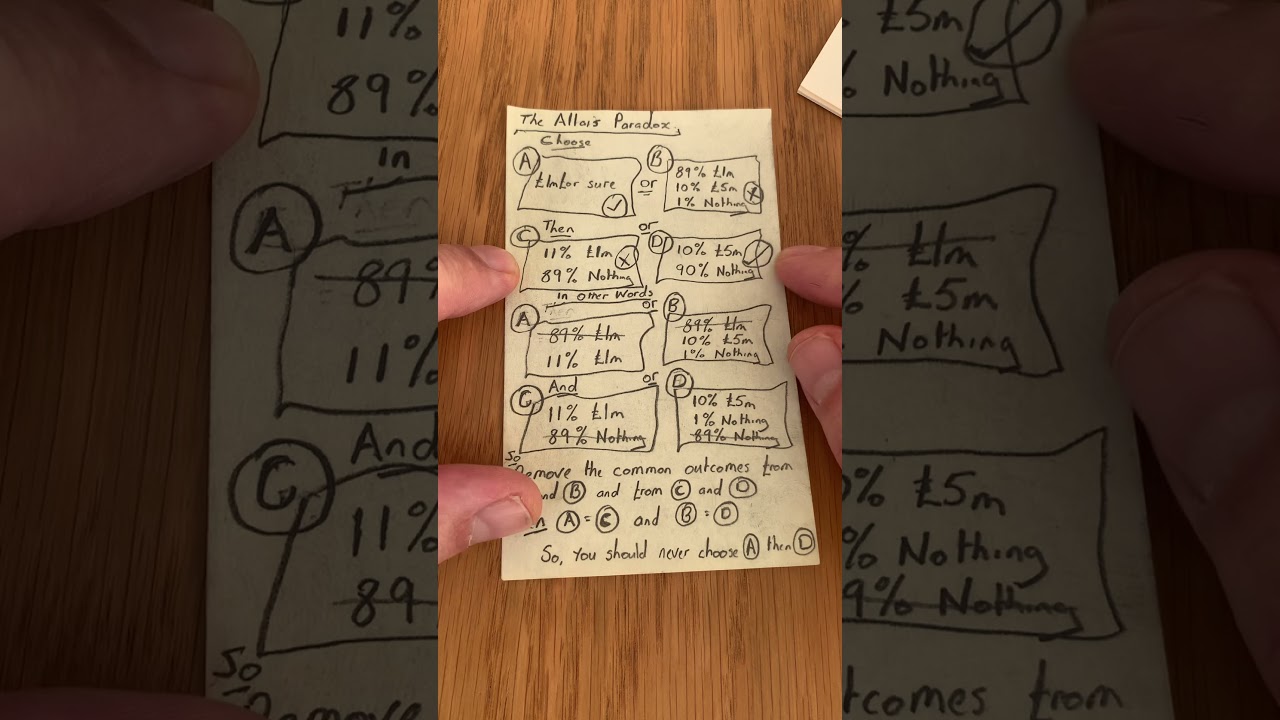 The Allais Paradox.
Choose
A £1m for sure or B 89% £1m
10% £5m
1% Nothing
Then or
C 11% £1m
89% Nothing
D 10% £5m
90% Nothing
In Other Words
or
A 89% £1m
11% £1m
B 89% £1m
10% £5m
1% Nothing
And or
C 11% £1m
89% Nothing
D 10% £5m
1% Nothing
89% Nothing
So
Remove the common outcomes from
B and from C and D
A = C and B = D
So, You should never choose A then D